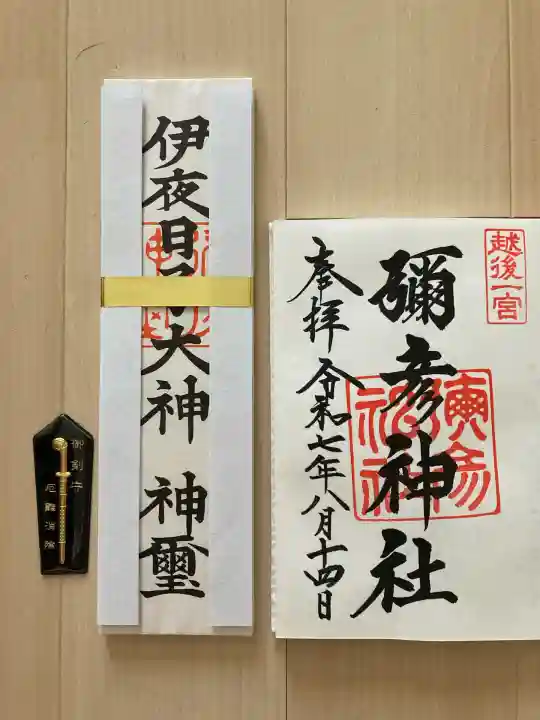 越後一宮
彌彦神社
奉拝 令和七年八月十四日
伊夜日子大神 神璽
御剣守
厄難消除